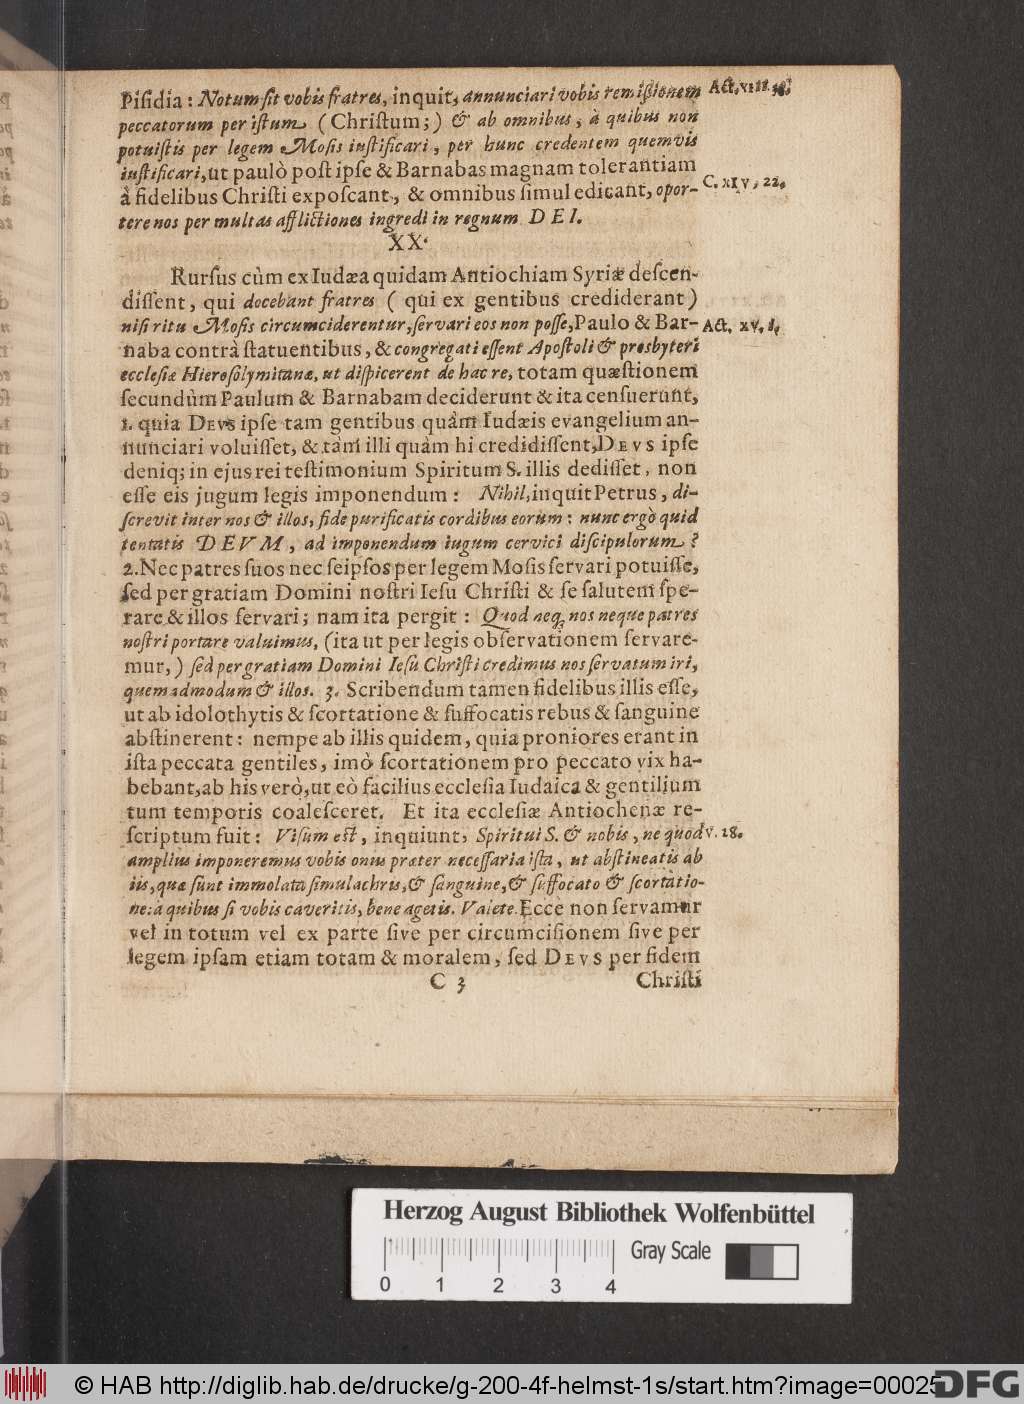 Piſidia: Notum ſit vobis fratres, inquit, annunciari vobis remiſſionem
peccatorum per iſtum (Chriſtum;) & ab omnibus, à quibus non
potuiſtis per legem Moſis iuſtificari, per hunc credentem quemvis
iuſtificari, ut paulò poſt ipſe & Barnabas magnam tolerantiam
à fidelibus Chriſti expoſcant, & omnibus ſimul edicant, opor-
C. XIV, 22.
tere nos per multas afflictiones ingredi in regnum DEI.
XX.
Rurſus cùm ex Iudæa quidam Antiochiam Syriæ deſcen-
diſſent, qui docebant fratres (qui ex gentibus crediderant)
niſi ritu Moſis circumciderentur, ſervari eos non poſſe, Paulo & Bar-
Act. XV. 1.
naba contrà ſtatuentibus, & congregati eſſent Apoſtoli & presbyteri
eccleſiæ Hieroſolymitanæ, ut diſpicerent de hac re, totam quæſtionem
ſecundùm Paulum & Barnabam deciderunt & ita cenſuerunt,
1. quia DEVS ipſe tam gentibus quàm Iudæis evangelium an-
nunciari voluiſſet, & tàm illi quàm hi credidiſſent, DEVS ipſe
deniq; in ejus rei teſtimonium Spiritum S. illis dediſſet, non
eſſe eis jugum legis imponendum: Nihil, inquit Petrus, di-
ſcrevit inter nos & illos, fide purificatis cordibus eorum: nunc ergò quid
tentatis DEVM, ad imponendum iugum cervici diſcipulorum?
2. Nec patres ſuos nec ſeipſos per legem Moſis ſervari potuiſſe,
ſed per gratiam Domini noſtri Ieſu Chriſti & ſe ſalutem ſpe-
rare & illos ſervari; nam ita pergit: Quod neq; nos neque patres
noſtri portare valuimus, (ita ut per legis obſervationem ſervare-
mur,) ſed per gratiam Domini Ieſu Chriſti credimus nos ſervatum iri,
quemadmodum & illos. 3. Scribendum tamen fidelibus illis eſſe,
ut ab idolothytis & ſcortatione & ſuffocatis rebus & ſanguine
abſtinerent: nempe ab illis quidem, quia proniores erant in
iſta peccata gentiles, imò ſcortationem pro peccato vix ha-
bebant, ab his verò, ut eò facilius eccleſia Iudaica & gentilium
tum temporis coaleſceret. Et ita eccleſiæ Antiochenæ re-
ſcriptum fuit: Viſum eſt, inquiunt, Spiritui S. & nobis, ne quod
v. 28.
amplius imponeremus vobis onus præter neceſſaria iſta, ut abſtineatis ab
iis, quæ ſunt immolata ſimulachris, & ſanguine, & ſuffocato & ſcortatio-
ne: à quibus ſi vobis caveritis, bene agetis. Valete. Ecce non ſervamur
vel in totum vel ex parte ſive per circumciſionem ſive per
legem ipſam etiam totam & moralem, ſed DEVS per fidem
C 3
Chriſti
Herzog August Bibliothek Wolfenbüttel
Gray Scale
0 1 2 3 4
© HAB http://diglib.hab.de/drucke/g-200-4f-helmst-1s/start.htm?image=00025
DFG